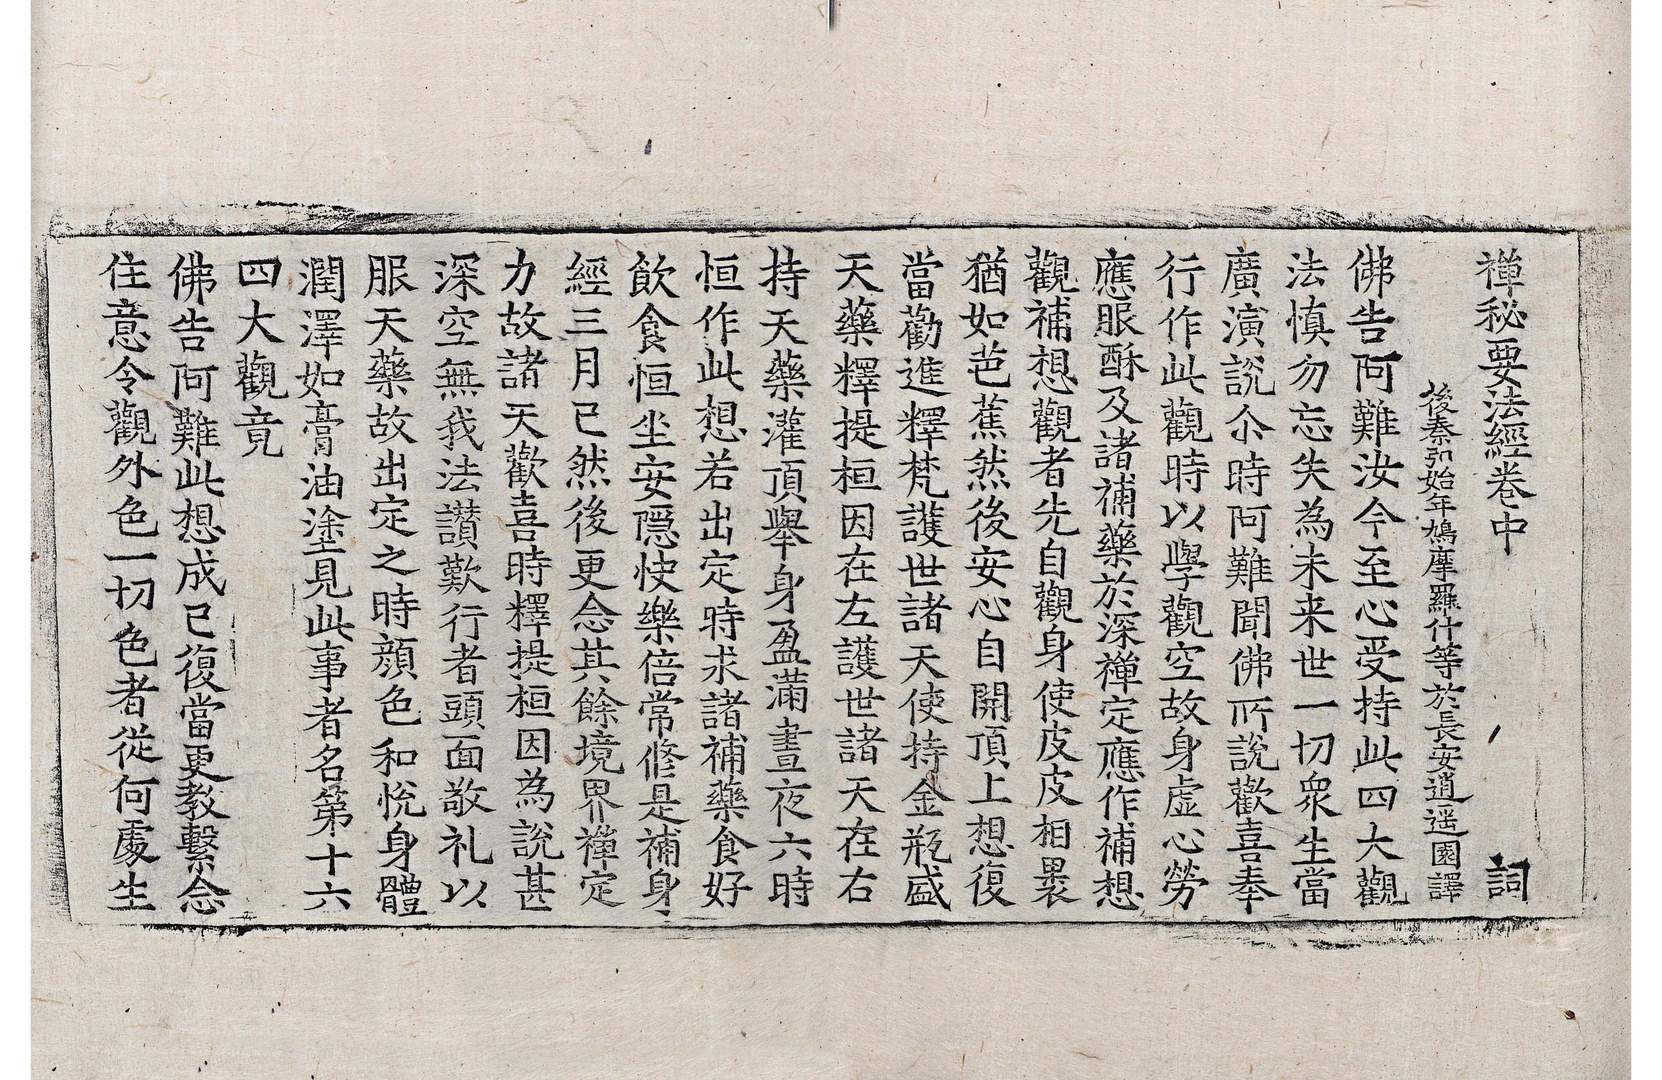 禅秘要法經卷中　詞
後秦弘始年鳩摩羅什等於長安逍遥園譯
佛告阿難汝今至心受持此四大觀
法慎勿忘失為未来世一切衆生當
廣演說尒時阿難聞佛所說歡喜奉
行作此觀時以學觀空故身虚心勞
應服酥及諸補藥於深禅定應作補想
觀補想觀者先自觀身使皮皮相褁
猶如芭蕉然後安心自開頂上想復
當勸進釋梵護世諸天使持金瓶盛
天藥釋提桓因在左護世諸天在右
持天藥灌頂舉身盈滿晝夜六時
恒作此想若出定時求諸補藥食好
飲食恒坐安隱快樂倍常修是補身
經三月已然後更念其餘境界禅定
力故諸天歡喜時釋提桓因為說甚
深空無我法讃歎行者頭面敬礼以
服天藥故出定之時顔色和悅身體
潤澤如膏油塗見此事者名第十六
四大觀竟
佛告阿難此想成已復當更教繫念
住意令觀外色一切色者從何處生